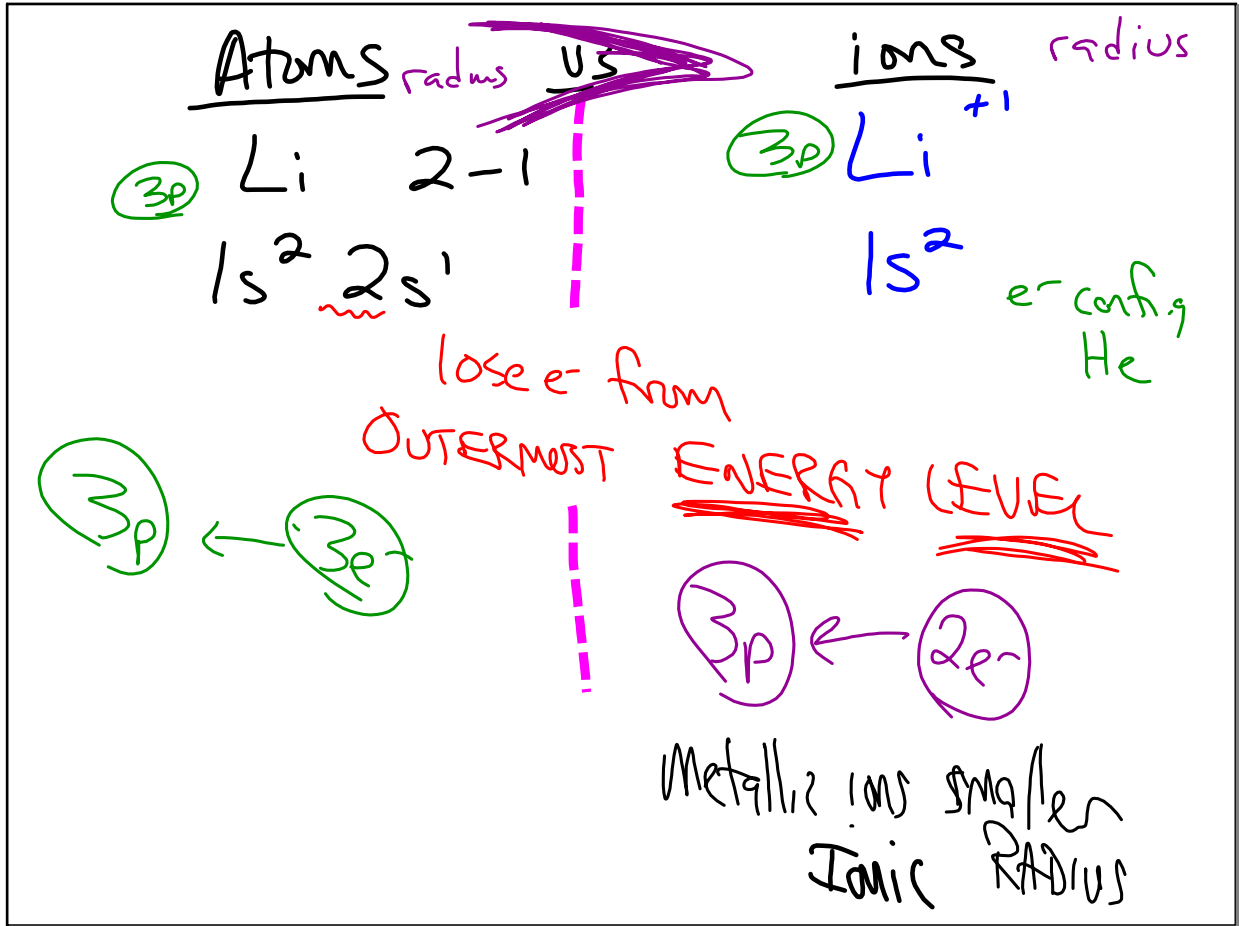 Atoms radius vs ions radius
3p Li 2-1
3p Li +1
1s² 2s¹
1s²
e⁻ config
He
lose e⁻ from
OUTERMOST ENERGY LEVEL
3p ← 3e⁻
3p ← 2e⁻
Metallic ions smaller
Ionic RADIUS